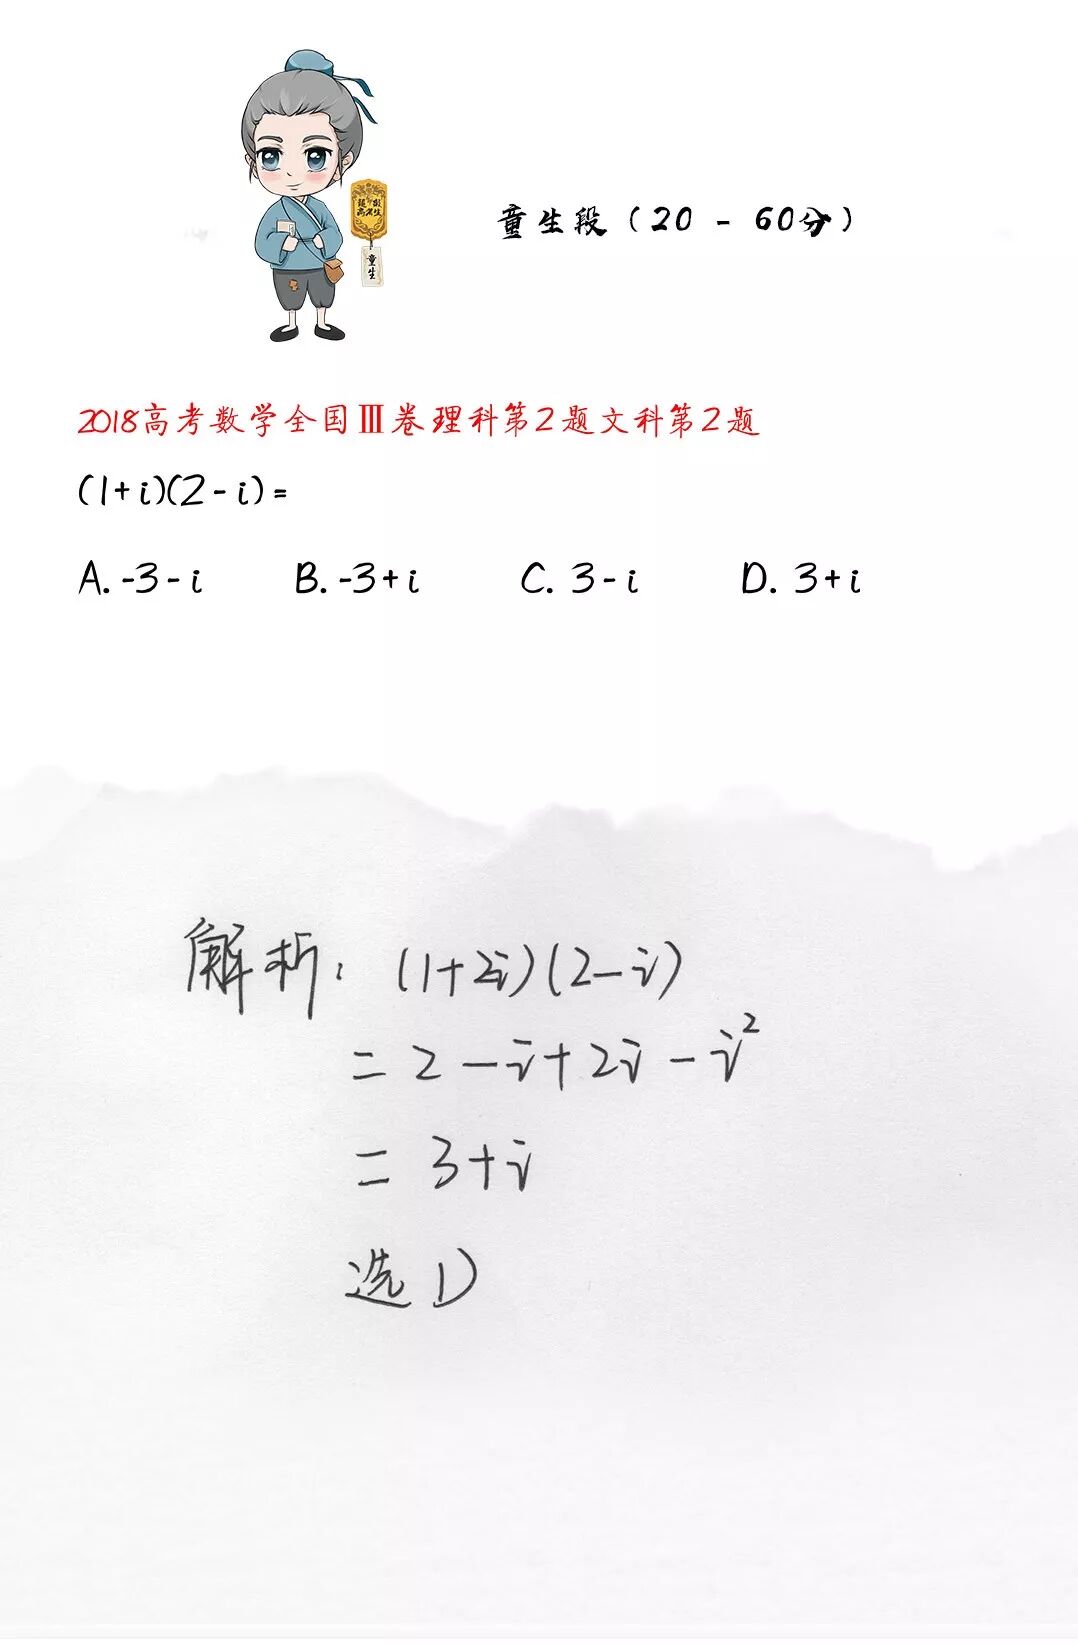 童生段（20 - 60分）
童生
2018高考数学全国Ⅲ卷理科第2题文科第2题
(1+i)(2-i)=
A. -3-i B. -3+i C. 3-i D. 3+i
解析：(1+2i)(2-i)
=2-i+2i-i²
=3+i
选D